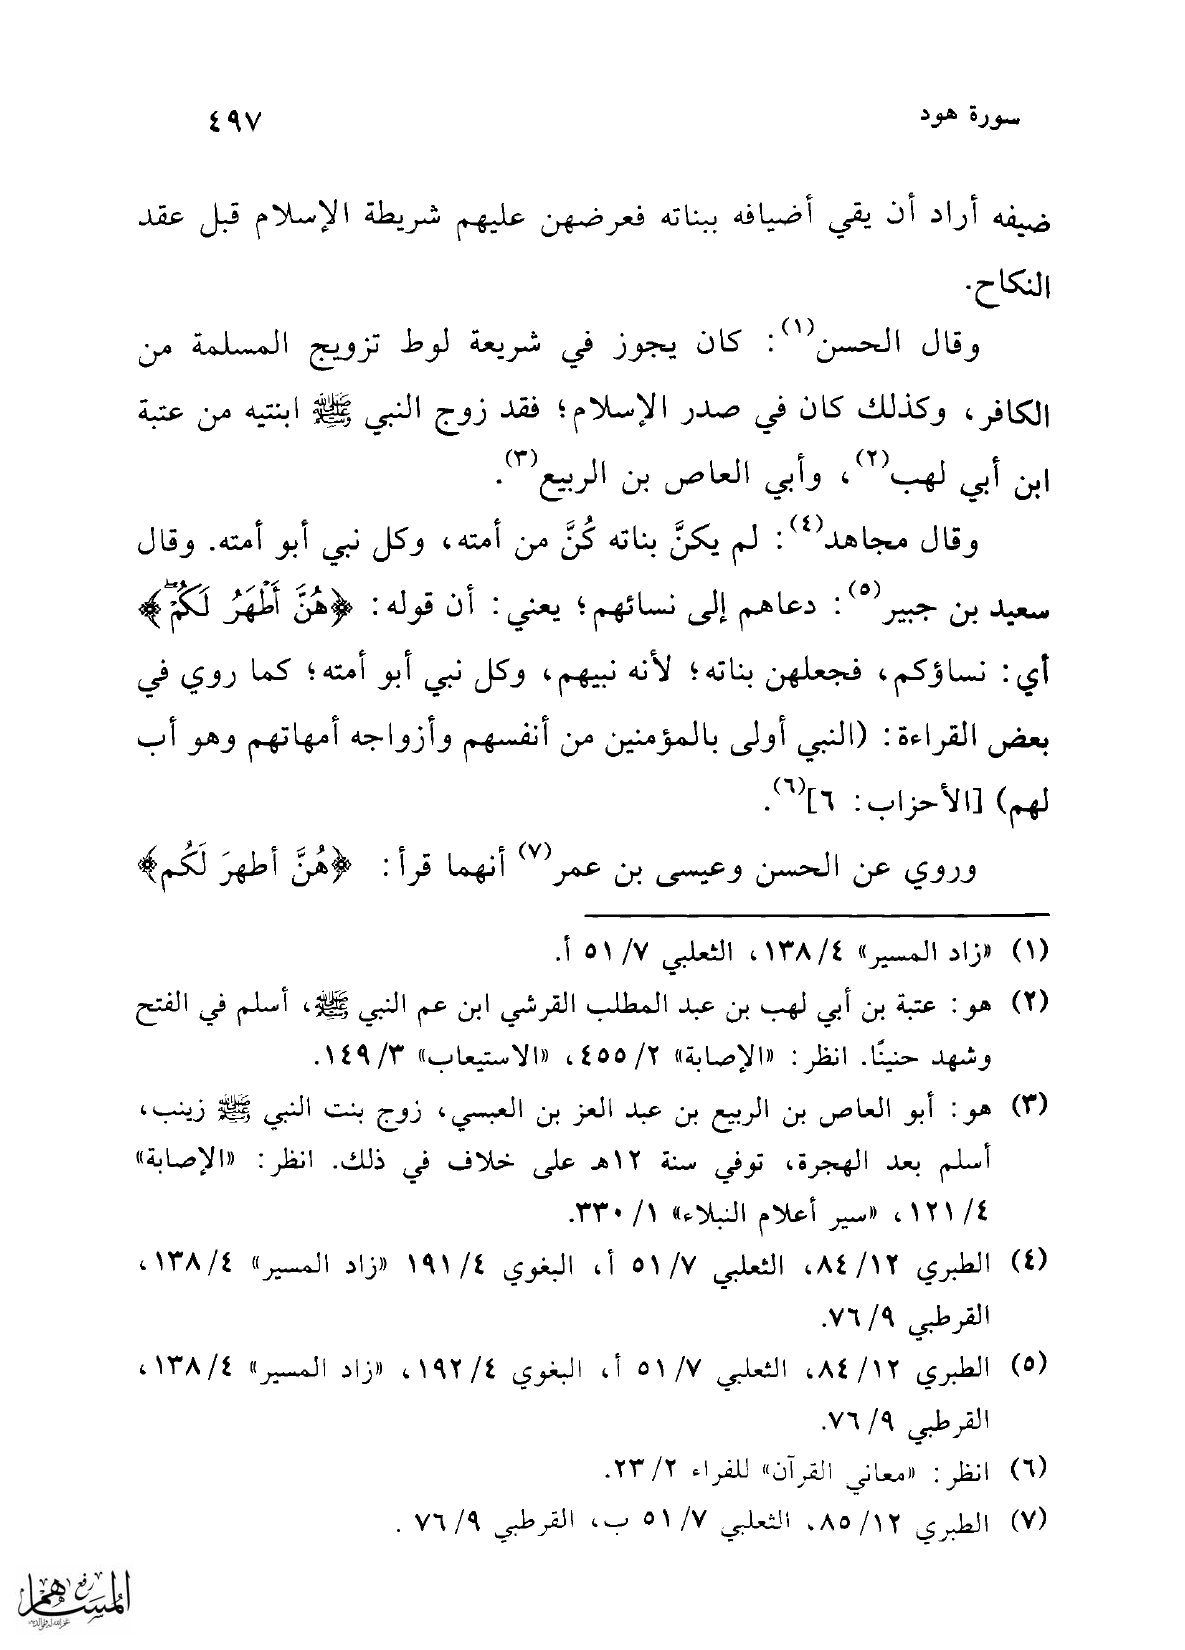 سورة هود
٤٩٧
ضيفه أراد أن يقي أضيافه ببناته فعرضهن عليهم شريطة الإسلام قبل عقد
النكاح.
وقال الحسن(١): كان يجوز في شريعة لوط تزويج المسلمة من
الكافر، وكذلك كان في صدر الإسلام؛ فقد زوج النبي ﷺ ابنتيه من عتبة
ابن أبي لهب(٢)، وأبي العاص بن الربيع(٣).
وقال مجاهد(٤): لم يكنَّ بناته كُنَّ من أمته، وكل نبي أبو أمته. وقال
سعيد بن جبير(٥): دعاهم إلى نسائهم؛ يعني: أن قوله: ﴿هُنَّ أَطْهَرُ لَكُمْ ۖ﴾
أي: نساؤكم، فجعلهن بناته؛ لأنه نبيهم، وكل نبي أبو أمته؛ كما روي في
بعض القراءة: (النبي أولى بالمؤمنين من أنفسهم وأزواجه أمهاتهم وهو أب
لهم) [الأحزاب: ٦](٦).
وروي عن الحسن وعيسى بن عمر(٧) أنهما قرأ: ﴿هُنَّ أطهرَ لَكُم﴾
(١) «زاد المسير» ٤/ ١٣٨، الثعلبي ٧/ ٥١ أ.
(٢) هو: عتبة بن أبي لهب بن عبد المطلب القرشي ابن عم النبي ﷺ، أسلم في الفتح
وشهد حنينًا. انظر: «الإصابة» ٢/ ٤٥٥، «الاستيعاب» ٣/ ١٤٩.
(٣) هو: أبو العاص بن الربيع بن عبد العز بن العبسي، زوج بنت النبي ﷺ زينب،
أسلم بعد الهجرة، توفي سنة ١٢هـ على خلاف في ذلك. انظر: «الإصابة»
٤/ ١٢١، «سير أعلام النبلاء» ١/ ٣٣٠.
(٤) الطبري ١٢/ ٨٤، الثعلبي ٧/ ٥١ أ، البغوي ٤/ ١٩١ «زاد المسير» ٤/ ١٣٨،
القرطبي ٩/ ٧٦.
(٥) الطبري ١٢/ ٨٤، الثعلبي ٧/ ٥١ أ، البغوي ٤/ ١٩٢، «زاد المسير» ٤/ ١٣٨،
القرطبي ٩/ ٧٦.
(٦) انظر: «معاني القرآن» للفراء ٢/ ٢٣.
(٧) الطبري ١٢/ ٨٥، الثعلبي ٧/ ٥١ ب، القرطبي ٩/ ٧٦ .
رفع
المساهم